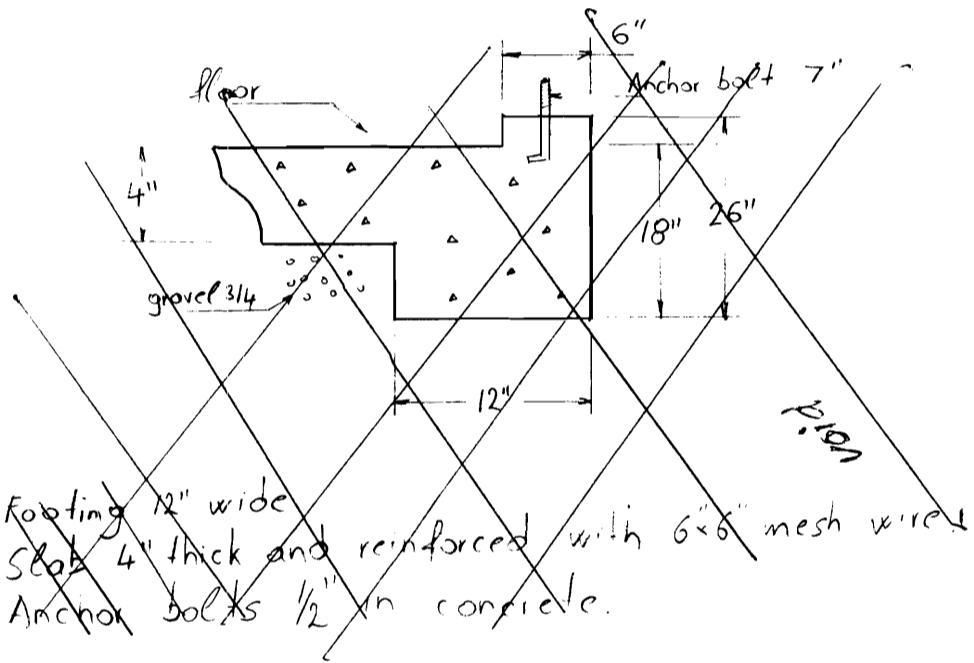 6"
Anchor bolt 7"
floor
4"
18"
26"
grovel 3/4
12"
void
Footing 12" wide
Slab 4" thick and reinforced with 6"x6" mesh wire.
Anchor bolts 1/2" in concrete.